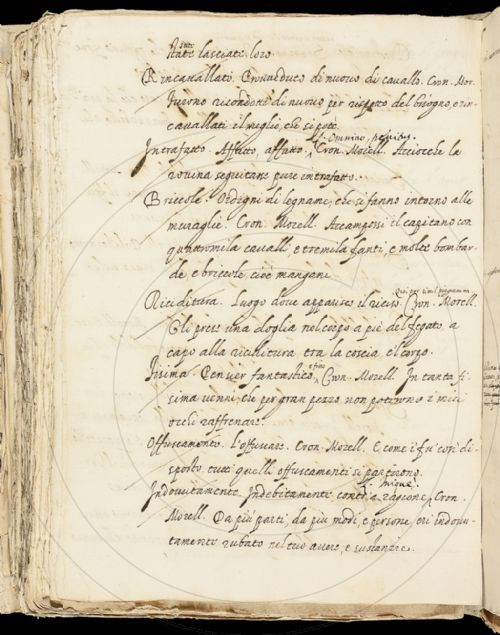 stati lasciati loro.
Rincavallato. Provveduto di nuovo di cavallo. Cron. Mor.
Furono ricondotti di nuovo per rispetto del bisogno, e rin-
cavallati il meglio, che si potè.
L. Omnino, penitus.
Intrafatto. Affatto, affatto. Cron. Morell. Acciocchè la
rovina seguitasse pure intrafatto.
Briccole. Ordigni di legname, che si fanno intorno alle
muraglie. Cron. Morell. Accampossi il capitano con
quattromila cavalli, e tremila fanti, e molte bombar-
de, e briccole, cioè mangani.
Riciditura. Luogo dove apparisce il reciso. Cron. Morell.
Gli prese una doglia nel corpo a piè del fegato, a
capo alla riciditura tra la coscia, e 'l corpo.
Fisima. Pensier fantastico. Cron. Morell. In tanta fi-
sima venni, che per gran pezzo non potevono i miei
occhi raffrenare.
Offuscamento. L'offuscare. Cron. Morell. E come i' fu' così di-
sposto, tutti quelli offuscamenti si partirono.
L. inique.
Indovutamente. Indebitamente, contr' a ragione, Cron.
Morell. Da più parti, da più modi, e persone, eri indovu-
tamente rubato nel tuo avere, e sustanzie.